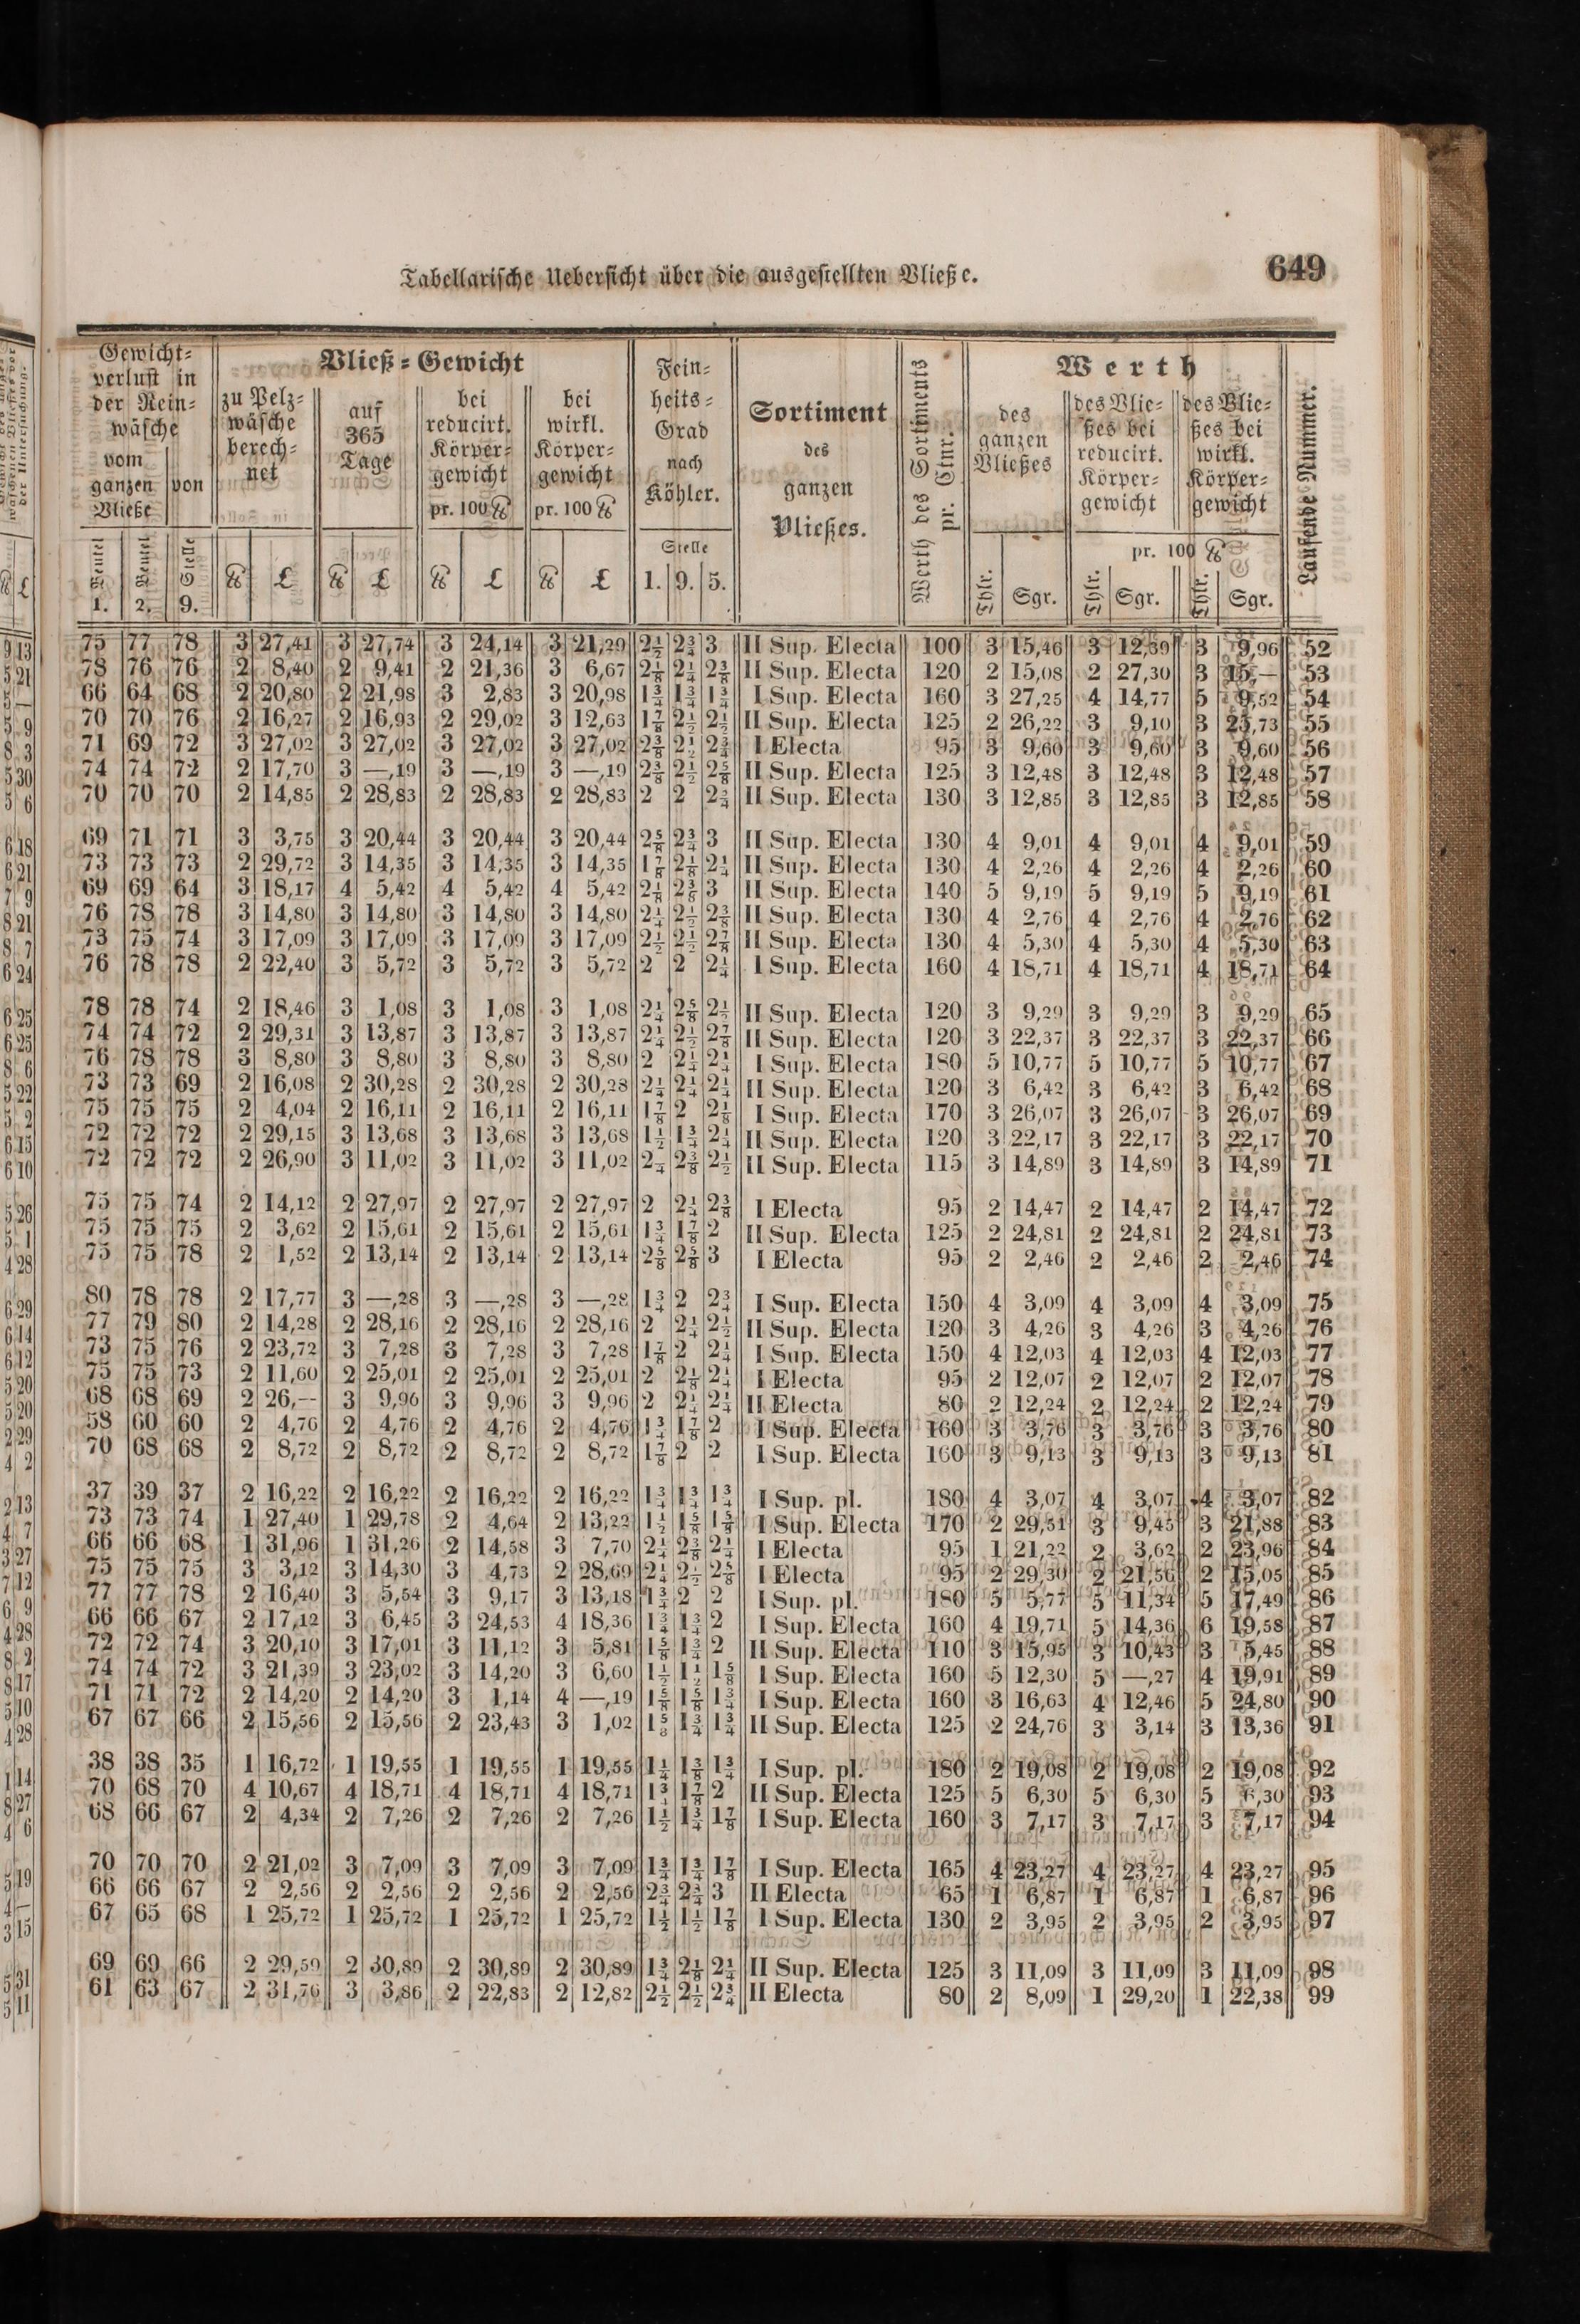 Tabellarische Uebersicht über die ausgestellten Vließe. 649
Gewicht-verlust in der Rein-wäsche
vom ganzen Vließe | von
Beutel 1. | Beutel 2. | Stelle 9.
Vließ-Gewicht
zu Pelz-wäsche berech-net | auf 365 Tage | bei reducirt. Körper-gewicht pr. 100 ℔ | bei wirkl. Körper-gewicht pr. 100 ℔
℔ | £ | ℔ | £ | ℔ | £ | ℔ | £
Fein-heits-Grad nach Köhler.
Stelle
1. | 9. | 5.
Sortiment des ganzen Vließes.
Werth des Sortiments pr. Ctnr.
Werth
des ganzen Vließes | des Vlie-ßes bei reducirt. Körper-gewicht | des Vlie-ßes bei wirkl. Körper-gewicht
pr. 100 ℔
Thlr. | Sgr. | Thlr. | Sgr. | Thlr. | Sgr.
Laufende Nummer.
75 77 78 3 27,41 3 27,74 3 24,14 3 21,29 2½ 2¾ 3 II Sup. Electa 100 3 15,46 3 12,39 3 9,96 52
78 76 76 2 8,40 2 9,41 2 21,36 3 6,67 2⅛ 2¼ 2⅜ II Sup. Electa 120 2 15,08 2 27,30 3 15,— 53
66 64 68 2 20,80 2 21,98 3 2,83 3 20,98 1¾ 1¾ 1¾ I Sup. Electa 160 3 27,25 4 14,77 5 9,52 54
70 70 76 2 16,27 2 16,93 2 29,02 3 12,63 1⅞ 2½ 2½ II Sup. Electa 125 2 26,22 3 9,10 3 23,73 55
71 69 72 3 27,02 3 27,02 3 27,02 3 27,02 2⅜ 2½ 2¾ I Electa 95 3 9,60 3 9,60 3 9,60 56
74 74 72 2 17,70 3 —,19 3 —,19 3 —,19 2⅜ 2½ 2⅝ II Sup. Electa 125 3 12,48 3 12,48 3 12,48 57
70 70 70 2 14,85 2 28,83 2 28,83 2 28,83 2 2 2¾ II Sup. Electa 130 3 12,85 3 12,85 3 12,85 58
69 71 71 3 3,75 3 20,44 3 20,44 3 20,44 2⅝ 2¾ 3 II Sup. Electa 130 4 9,01 4 9,01 4 9,01 59
73 73 73 2 29,72 3 14,35 3 14,35 3 14,35 1⅞ 2⅛ 2¼ II Sup. Electa 130 4 2,26 4 2,26 4 2,26 60
69 69 64 3 18,17 4 5,42 4 5,42 4 5,42 2⅛ 2⅜ 3 II Sup. Electa 140 5 9,19 5 9,19 5 9,19 61
76 78 78 3 14,80 3 14,80 3 14,80 3 14,80 2¼ 2½ 2⅜ II Sup. Electa 130 4 2,76 4 2,76 4 2,76 62
73 75 74 3 17,09 3 17,09 3 17,09 3 17,09 2½ 2½ 2⅞ II Sup. Electa 130 4 5,30 4 5,30 4 5,30 63
76 78 78 2 22,40 3 5,72 3 5,72 3 5,72 2 2 2¼ I Sup. Electa 160 4 18,71 4 18,71 4 18,71 64
78 78 74 2 18,46 3 1,08 3 1,08 3 1,08 2¼ 2⅝ 2½ II Sup. Electa 120 3 9,29 3 9,29 3 9,29 65
74 74 72 2 29,31 3 13,87 3 13,87 3 13,87 2¼ 2½ 2⅞ II Sup. Electa 120 3 22,37 3 22,37 3 22,37 66
76 78 78 3 8,80 3 8,80 3 8,80 3 8,80 2 2¼ 2¼ I Sup. Electa 180 5 10,77 5 10,77 5 10,77 67
73 73 69 2 16,08 2 30,28 2 30,28 2 30,28 2¼ 2¼ 2¼ II Sup. Electa 120 3 6,42 3 6,42 3 6,42 68
75 75 75 2 4,04 2 16,11 2 16,11 2 16,11 1⅞ 2 2⅛ I Sup. Electa 170 3 26,07 3 26,07 3 26,07 69
72 72 72 2 29,15 3 13,68 3 13,68 3 13,68 1½ 1¾ 2¼ II Sup. Electa 120 3 22,17 3 22,17 3 22,17 70
72 72 72 2 26,90 3 11,02 3 11,02 3 11,02 2 2⅜ 2½ II Sup. Electa 115 3 14,89 3 14,89 3 14,89 71
75 75 74 2 14,12 2 27,97 2 27,97 2 27,97 2 2¼ 2⅜ I Electa 95 2 14,47 2 14,47 2 14,47 72
75 75 75 2 3,62 2 15,61 2 15,61 2 15,61 1¾ 1⅞ 2 II Sup. Electa 125 2 24,81 2 24,81 2 24,81 73
75 75 78 2 1,52 2 13,14 2 13,14 2 13,14 2⅝ 2⅝ 3 I Electa 95 2 2,46 2 2,46 2 2,46 74
80 78 78 2 17,77 3 —,28 3 —,28 3 —,28 1¾ 2 2¾ I Sup. Electa 150 4 3,09 4 3,09 4 3,09 75
77 79 80 2 14,28 2 28,16 2 28,16 2 28,16 2 2¼ 2½ II Sup. Electa 120 3 4,26 3 4,26 3 4,26 76
73 75 76 2 23,72 3 7,28 3 7,28 3 7,28 1⅞ 2 2¼ I Sup. Electa 150 4 12,03 4 12,03 4 12,03 77
75 75 73 2 11,60 2 25,01 2 25,01 2 25,01 2 2⅛ 2¼ I Electa 95 2 12,07 2 12,07 2 12,07 78
68 68 69 2 26,-- 3 9,96 3 9,96 3 9,96 2 2¼ 2¼ II Electa 80 2 12,24 2 12,24 2 12,24 79
58 60 60 2 4,76 2 4,76 2 4,76 2 4,76 1¾ 1⅞ 2 I Sup. Electa 160 3 3,76 3 3,76 3 3,76 80
70 68 68 2 8,72 2 8,72 2 8,72 2 8,72 1⅞ 2 2 I Sup. Electa 160 3 9,13 3 9,13 3 9,13 81
37 39 37 2 16,22 2 16,22 2 16,22 2 16,22 1¾ 1¾ 1¾ I Sup. pl. 180 4 3,07 4 3,07 4 3,07 82
73 73 74 1 27,40 1 29,78 2 4,64 2 13,22 1½ 1⅝ 1⅝ I Sup. Electa 170 2 29,51 3 9,45 3 21,88 83
66 66 68 1 31,96 1 31,26 2 14,58 3 7,70 2¼ 2⅜ 2¼ I Electa 95 1 21,22 2 3,62 2 23,96 84
75 75 75 3 3,12 3 14,30 3 4,73 2 28,69 2¼ 2½ 2⅝ I Electa 95 2 29,30 2 21,56 2 15,05 85
77 77 78 2 16,40 3 5,54 3 9,17 3 13,18 1¾ 2 2 I Sup. pl. 180 5 5,77 5 11,34 5 17,49 86
66 66 67 2 17,12 3 6,45 3 24,53 4 18,36 1¾ 1¾ 2 I Sup. Electa 160 4 19,71 5 14,36 6 19,58 87
72 72 74 3 20,10 3 17,01 3 11,12 3 5,81 1⅝ 1¾ 2 II Sup. Electa 110 3 15,95 3 10,43 3 5,45 88
74 74 72 3 21,39 3 23,02 3 14,20 3 6,60 1½ 1½ 1⅝ I Sup. Electa 160 5 12,30 5 —,27 4 19,91 89
71 71 72 2 14,20 2 14,20 3 1,14 4 —,19 1⅝ 1⅝ 1¾ I Sup. Electa 160 3 16,63 4 12,46 5 24,80 90
67 67 66 2 15,56 2 15,56 2 23,43 3 1,02 1⅝ 1¾ 1¾ II Sup. Electa 125 2 24,76 3 3,14 3 13,36 91
38 38 35 1 16,72 1 19,55 1 19,55 1 19,55 1¼ 1⅜ 1¾ I Sup. pl. 180 2 19,08 2 19,08 2 19,08 92
70 68 70 4 10,67 4 18,71 4 18,71 4 18,71 1¾ 1⅞ 2 II Sup. Electa 125 5 6,30 5 6,30 5 6,30 93
68 66 67 2 4,34 2 7,26 2 7,26 2 7,26 1½ 1¾ 1⅞ I Sup. Electa 160 3 7,17 3 7,17 3 7,17 94
70 70 70 2 21,02 3 7,09 3 7,09 3 7,09 1¾ 1¾ 1⅞ I Sup. Electa 165 4 23,27 4 23,27 4 23,27 95
66 66 67 2 2,56 2 2,56 2 2,56 2 2,56 2¾ 2¾ 3 II Electa 65 1 6,87 1 6,87 1 6,87 96
67 65 68 1 25,72 1 25,72 1 25,72 1 25,72 1½ 1½ 1⅞ I Sup. Electa 130 2 3,95 2 3,95 2 3,95 97
69 69 66 2 29,59 2 30,89 2 30,89 2 30,89 1¾ 2⅛ 2¼ II Sup. Electa 125 3 11,09 3 11,09 3 11,09 98
61 63 67 2 31,76 3 3,86 2 22,83 2 12,82 2½ 2½ 2¾ II Electa 80 2 8,09 1 29,20 1 22,38 99